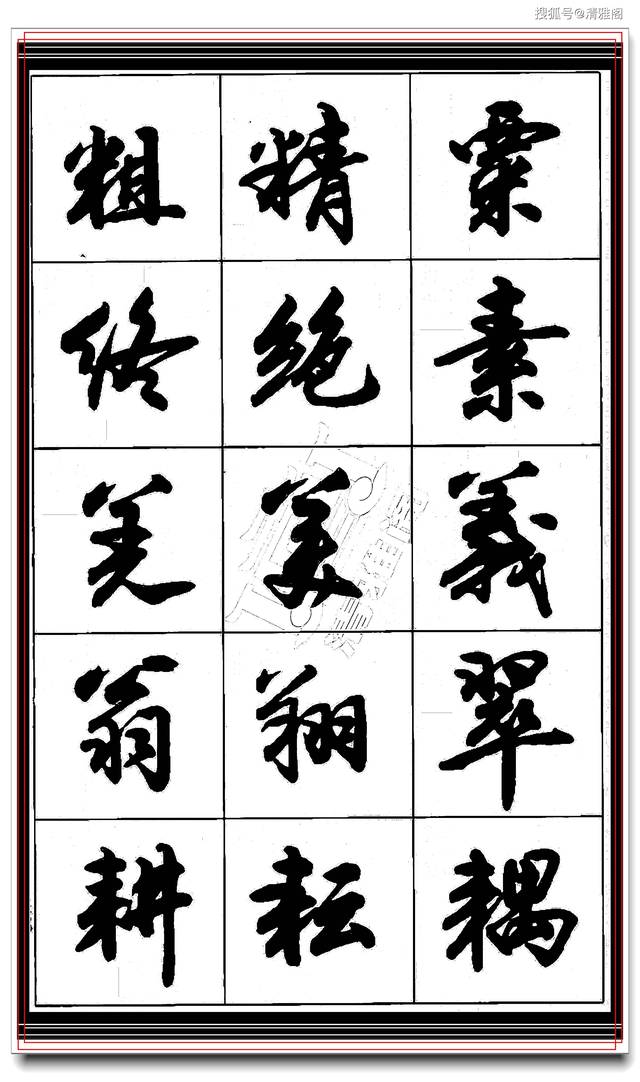 搜狐号@清雅阁
粗精粟
终绝素
羌美義
翁翔翠
耕耘耦